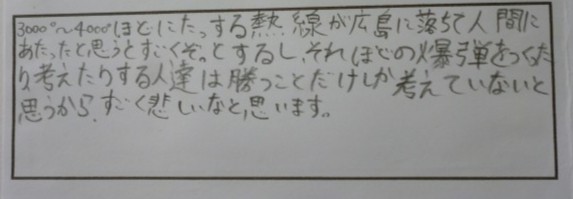 3000°〜4000°ほどにたっする熱線が広島に落ちて人間に
あたったと思うとすごくぞっとするし、それほどの爆弾をつくった
り考えたりする人達は勝つことだけしか考えていないと
思うから、すごく悲しいなと思います。